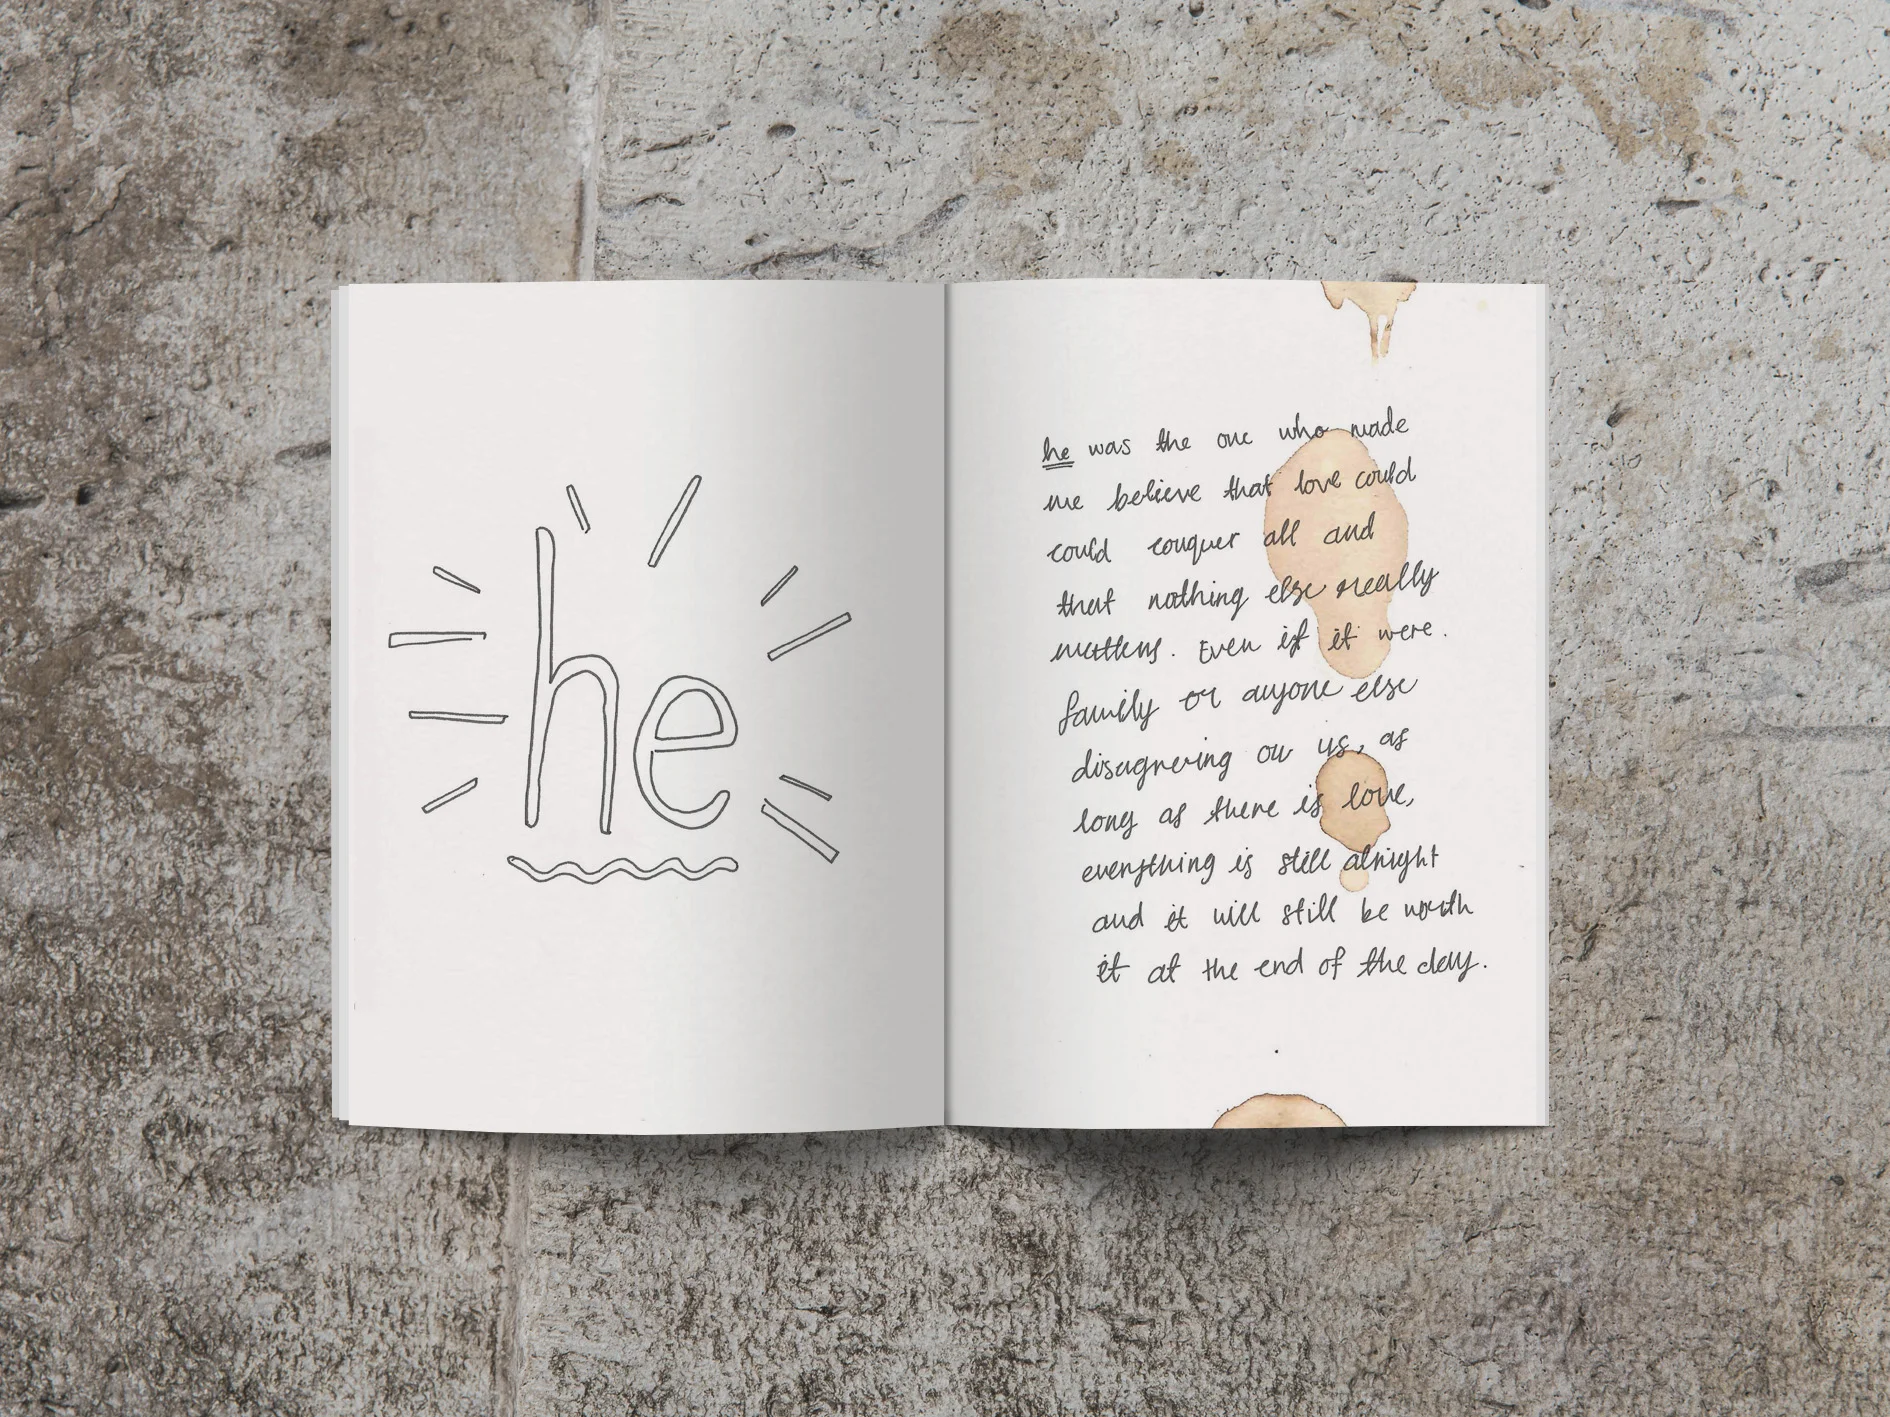 he
he was the one who made
me believe that love could
could conquer all and
that nothing else really
matters. Even if it were.
family or anyone else
disagreeing on us, as
long as there is love,
everything is still alright
and it will still be worth
it at the end of the day.